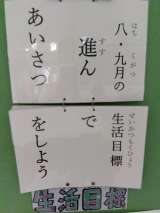 はち くがつ せいかつもくひょう
八・九月の生活目標
すす
進んで
あいさつをしよう
生活目標